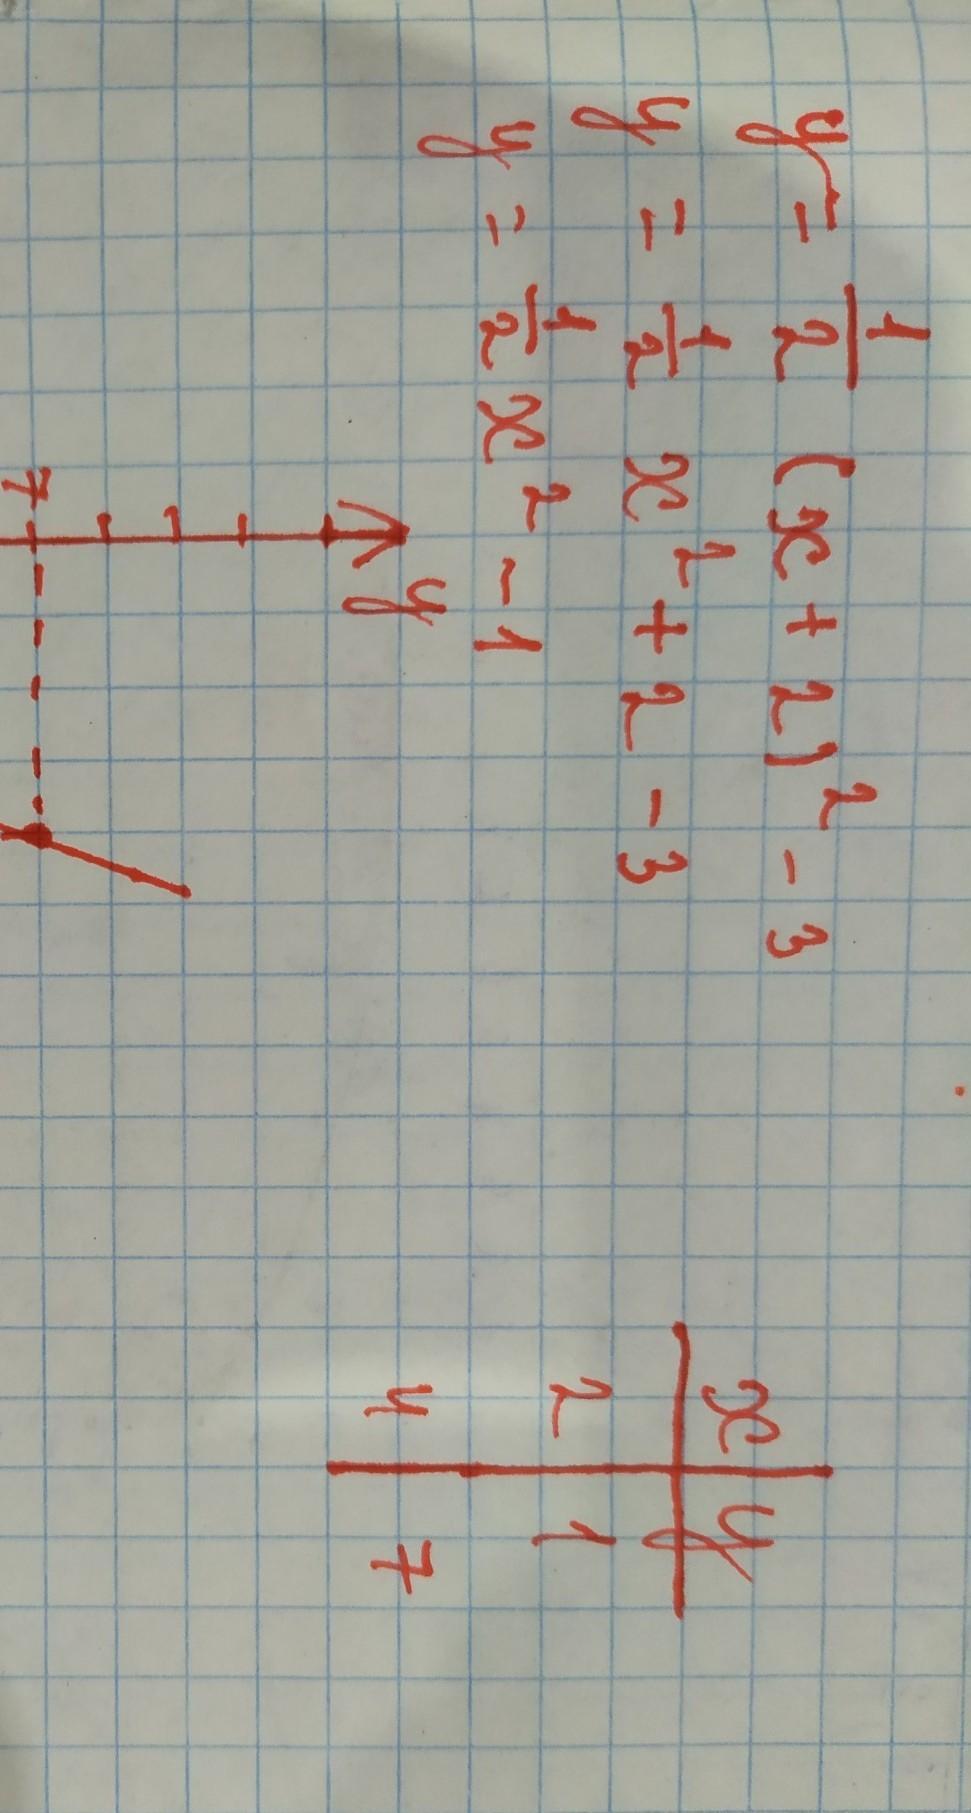 y = 1/2 (x + 2)² - 3
y = 1/2 x² + 2 - 3
y = 1/2 x² - 1
x y
2 1
4 7
y
7